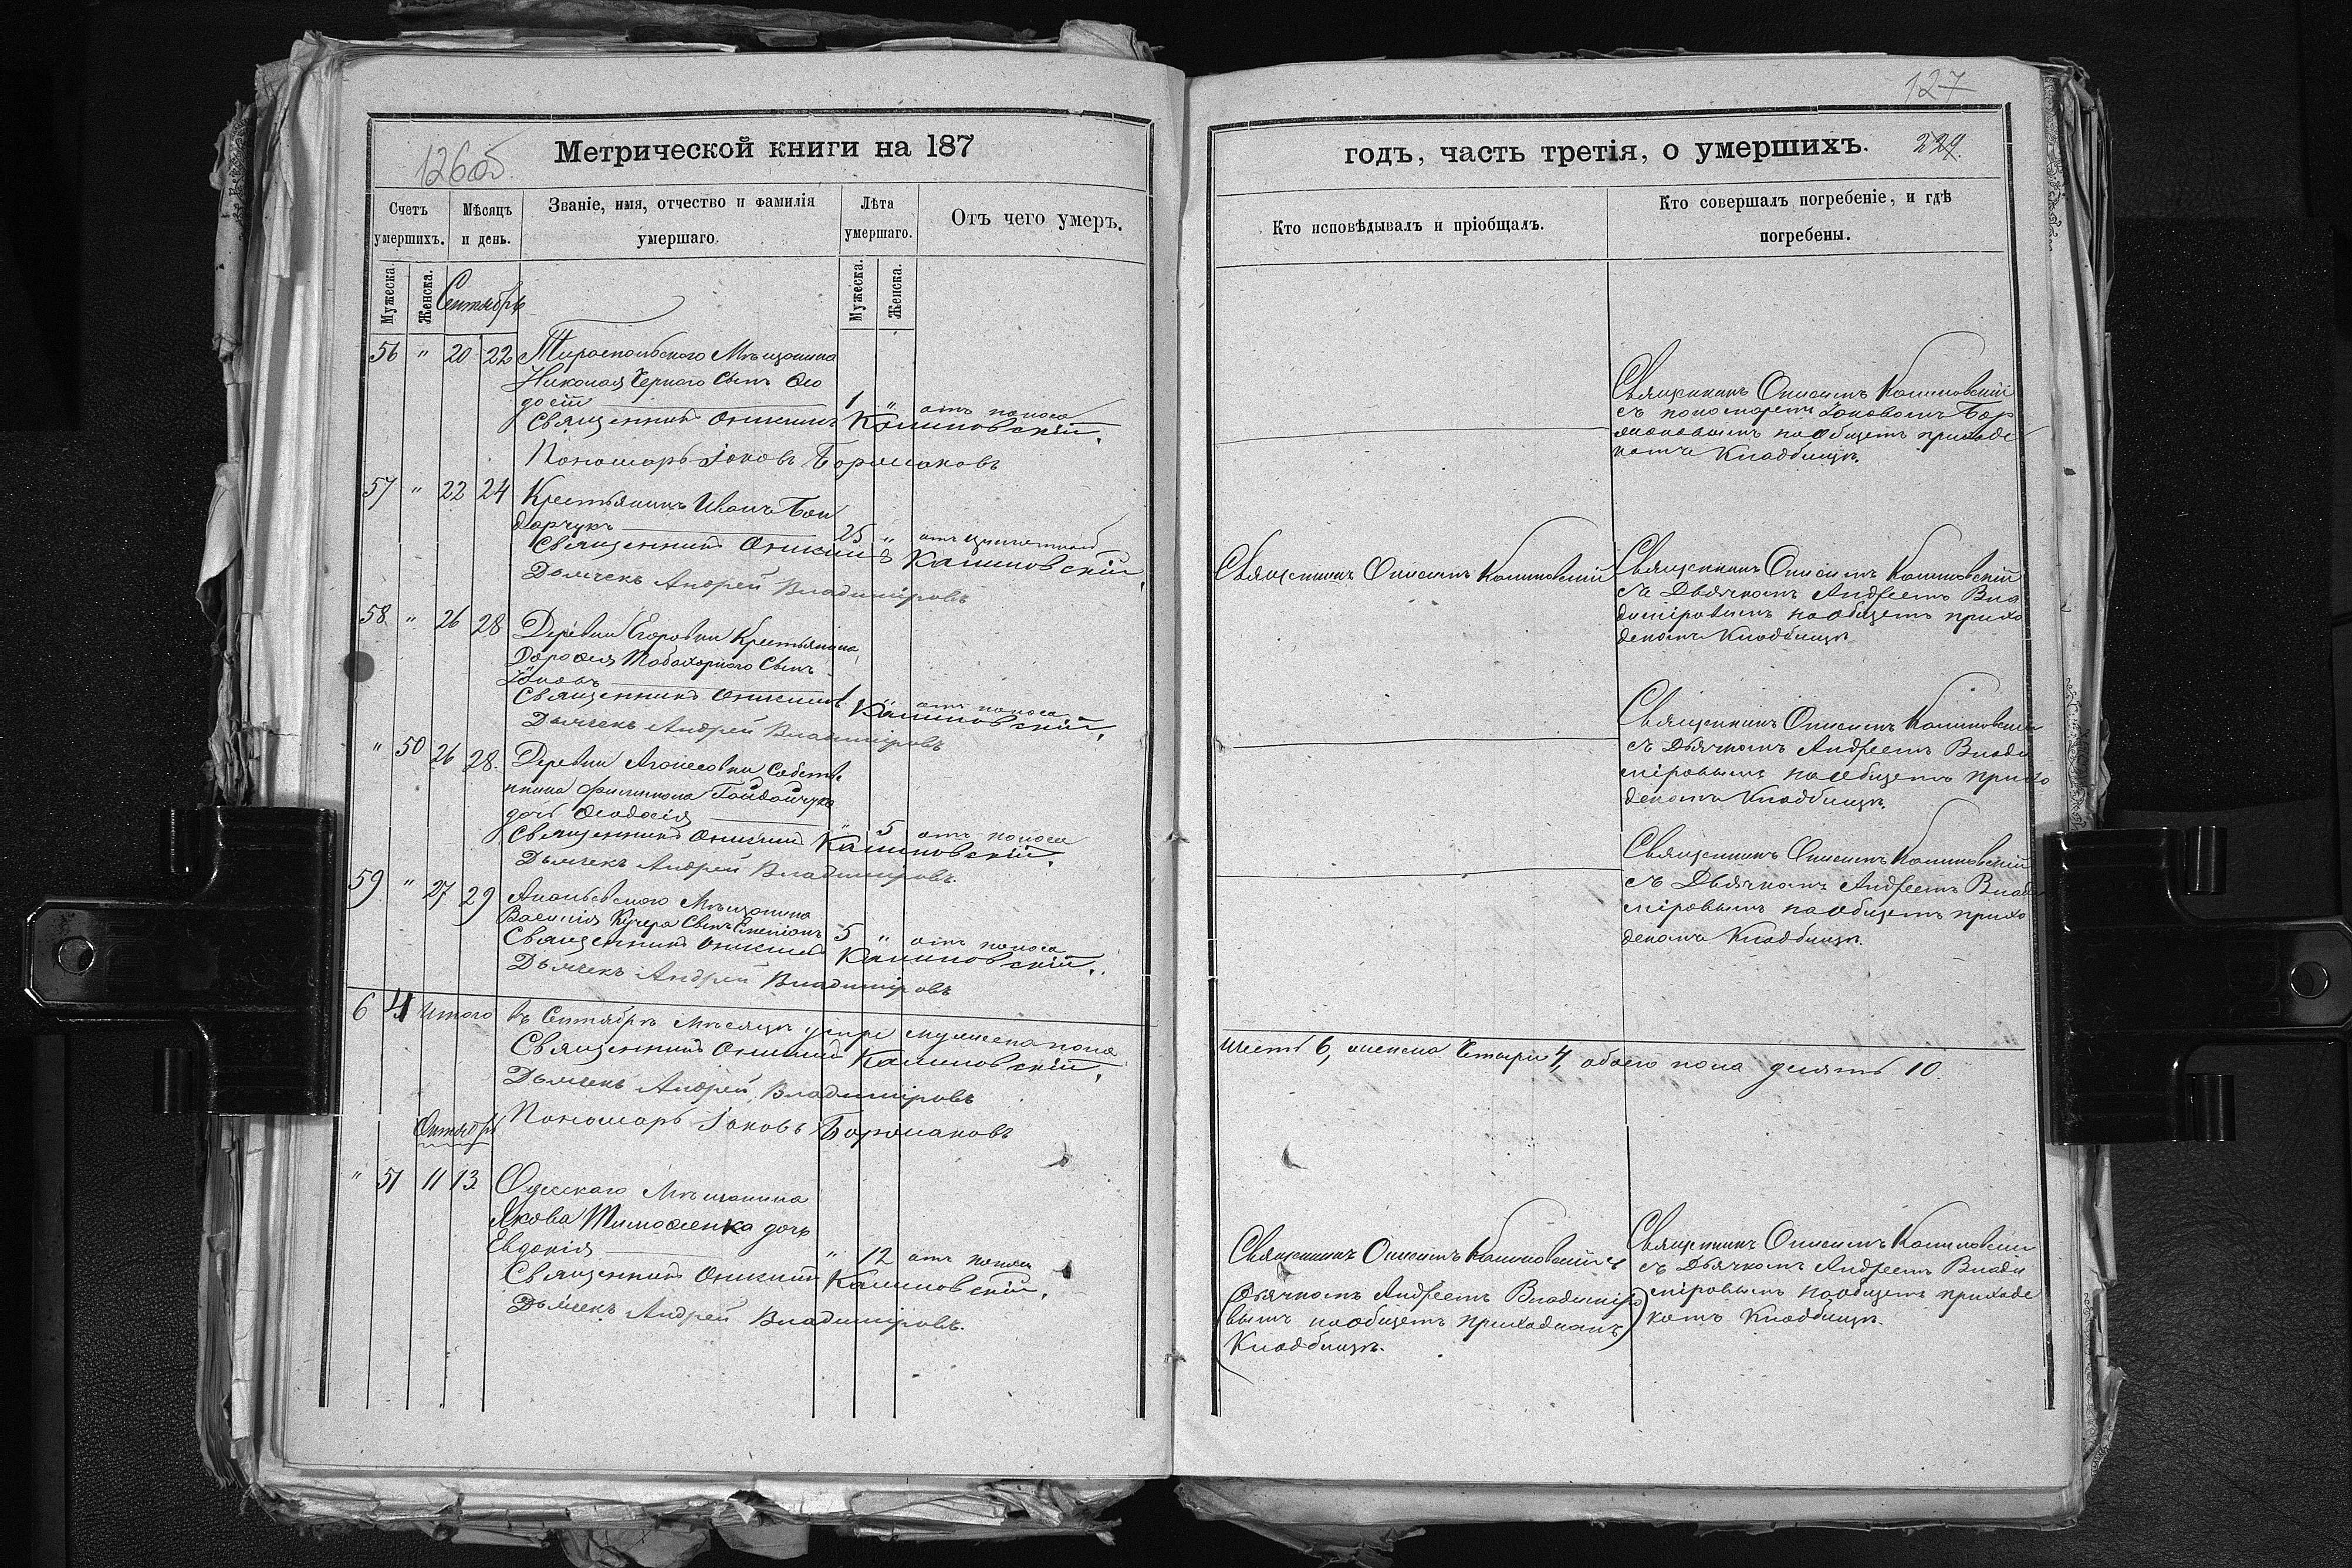 126об.
Метрической книги на 187
Счетъ умершихъ.
Мѣсяцъ и день.
Званіе, имя, отчество и фамилія умершаго.
Лѣта умершаго.
Отъ чего умеръ.
Мужеска.
Женска.
Сентябрь
Мужеска.
Женска.
56 " 20 22 Тираспольского Мѣщанина
Николая Черного сынъ Ѳео
досій 1 " отъ поноса
Священникъ Онисимъ Калиновскій.
Пономарь Іаковъ
57 " 22 24 Крестьянинъ Иванъ Бон
дарчукъ 25 " отъ
Священникъ Онисимъ Калиновскій.
Дьячекъ Андрей Владиміровъ
58 " 26 28 Деревни Егоровки Крестьянина
Дороѳея сынъ
Іаковъ 1 " отъ поноса
Священникъ Онисимъ Калиновскій.
Дьячекъ Андрей Владиміровъ
" 50 26 28. Деревни собстве
нника Филимона Гайдайчука
дочь Ѳеодосія " 5 отъ поноса
Священникъ Онисимъ Калиновскій.
Дьячекъ Андрей Владиміровъ.
59 " 27 29 Ананьевского Мѣщанина
Василія Кучера сынъ Симеонъ 5 " отъ поноса
Священникъ Онисимъ Калиновскій.
Дьячекъ Андрей Владиміровъ
6 4 Итого въ Сентябрѣ Мѣсяцѣ умре мужеска пола
Священникъ Онисимъ Калиновскій.
Дьячекъ Андрей Владиміровъ
Пономарь Іаковъ
Октябрь
" 51 11 13 Одесскаго Мѣщанина
Якова Тимоѳеенка дочь
Евдокія " 12 отъ поноса
Священникъ Онисимъ Калиновскій.
Дьячекъ Андрей Владиміровъ.
127
годъ, часть третія, о умершихъ.
229.
Кто исповѣдывалъ и пріобщалъ.
Кто совершалъ погребеніе, и гдѣ погребены.
Священникъ Онисимъ Калиновскій
съ пономаремъ Іаковомъ
на общемъ приходс
комъ Кладбищѣ.
Священникъ Онисимъ Калиновскій
Священникъ Онисимъ Калиновскій
съ Дьячкомъ Андреемъ Вла
диміровымъ на общемъ прихо
дскомъ Кладбищѣ
Священникъ Онисимъ Калиновскій
съ Дьячкомъ Андреемъ Влади
міровымъ на общемъ прихо
дскомъ Кладбищѣ.
Священникъ Онисимъ Калиновскій
съ Дьячкомъ Андреемъ Влади
міровымъ на общемъ прихо
дскомъ Кладбищѣ.
шесть 6, женска Четыри 4, обоего пола десять 10.
Священникъ Онисимъ Калиновскій съ
(Дьячкомъ Андреемъ Владиміро
вымъ на общемъ приходскомъ)
Кладбищѣ.
Священникъ Онисимъ Калиновскій
съ Дьячкомъ Андреемъ Влади
міровымъ на общемъ приходс
комъ Кладбищѣ.